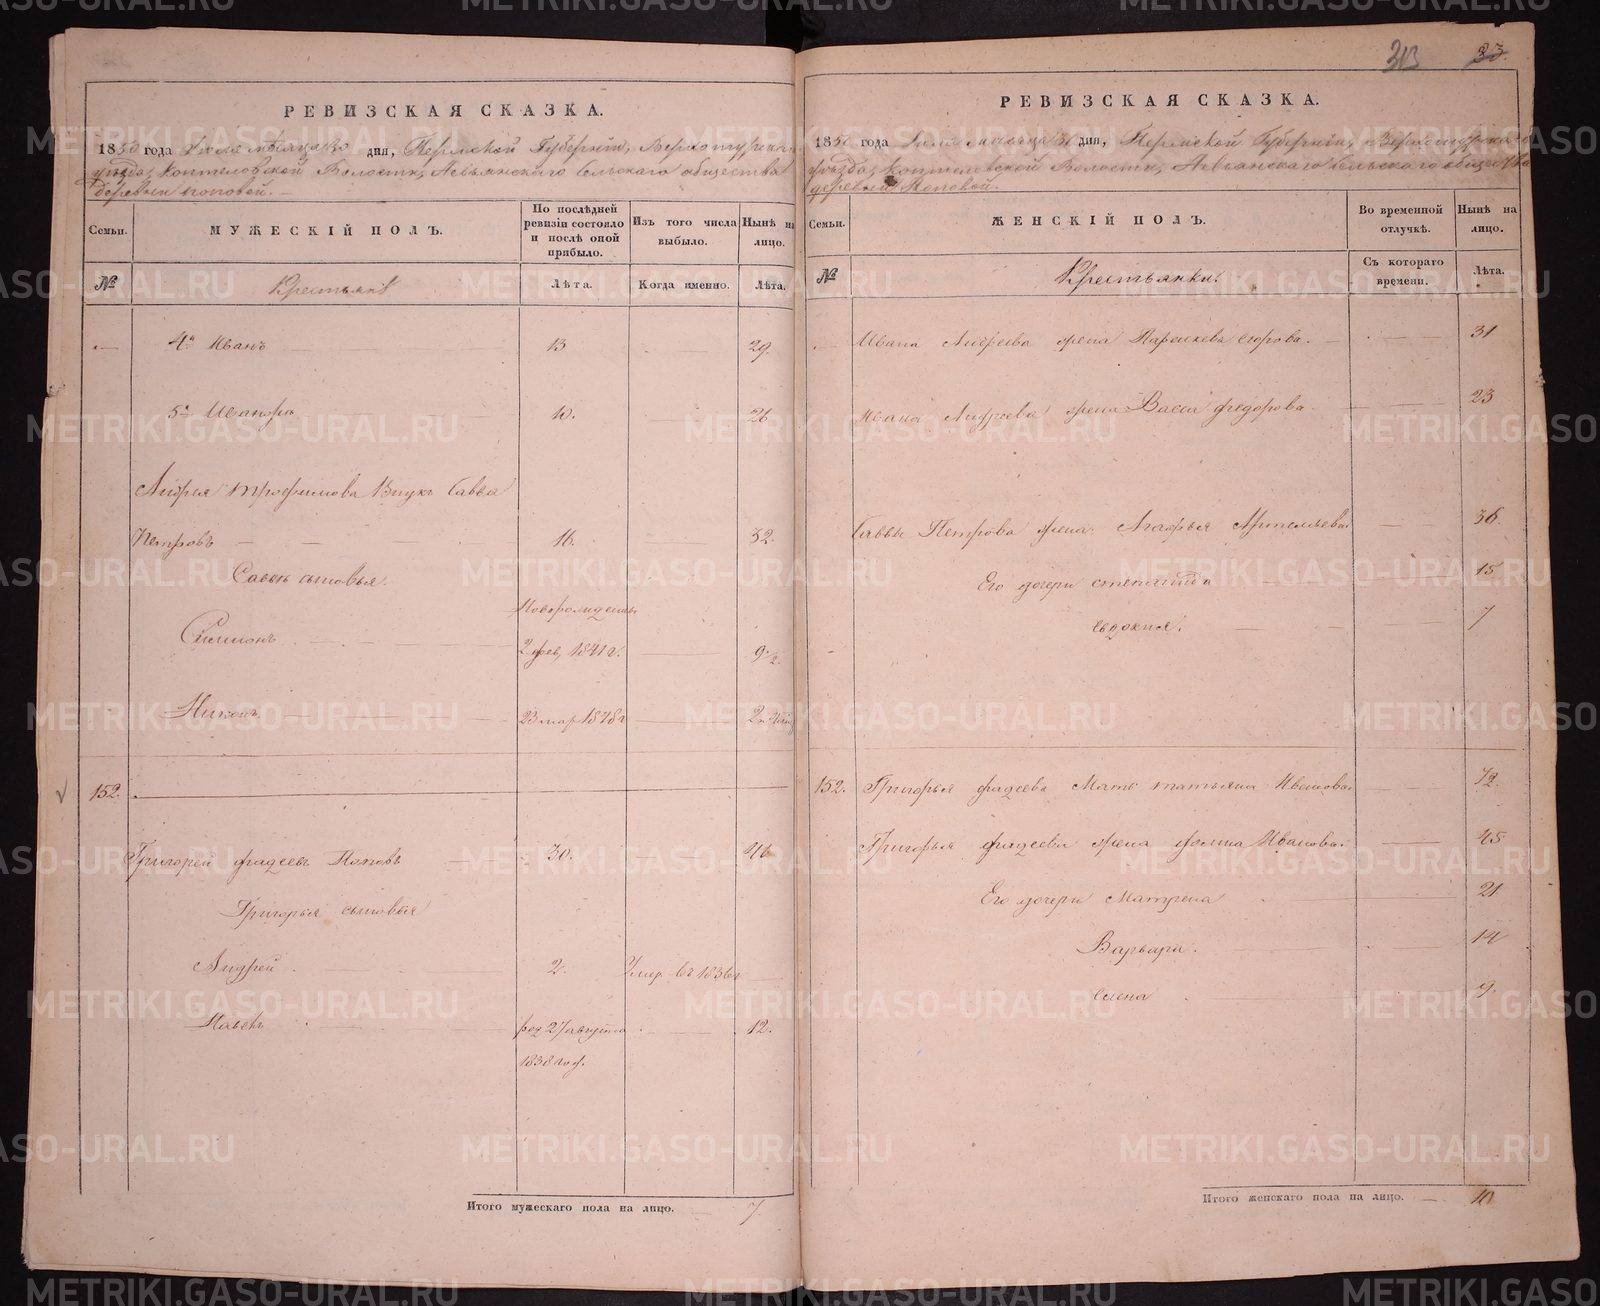 313 33
РЕВИЗСКАЯ СКАЗКА.
1850 года Июля месяца 30 дня, Пермской Губернiи, Верхотурскаго
уѣзда, Коптеловской Волости, Невьянскаго сельскаго общества
деревни Поповой.
Семьи.
МУЖЕСКIЙ ПОЛЪ.
По послѣдней ревизiи состояло и послѣ оной прибыло.
Изъ того числа выбыло.
Нынѣ на лицо.
№
Крестьянѣ
Лѣта.
Когда именно.
Лѣта.
4й Иванъ 13 29.
5й 10. 26
Андрея Трофимова Внукъ Савва
Петровъ 16. 32.
Саввы сыновья.
Новорожденны
Симионъ 2 фев. 1841 г. 9 ½
Никонъ 23 мар 1848 г 2
152.
Григорей Фадеевъ Поповъ 30. 46
Григорья сыновья
Андрей 2. Умер въ 1836 г
Павелъ род 27 августа 12.
1838 год.
Итого мужескаго пола на лицо. 7
РЕВИЗСКАЯ СКАЗКА.
1850 года Июля месяца 30 дня, Пермской Губернiи, Верхотурскаго
уѣзда, Коптеловской Волости, Невьянскаго сельскаго общества
деревни Поповой.
Семьи.
ЖЕНСКIЙ ПОЛЪ.
Во временной отлучкѣ.
Нынѣ на лицо.
№
Крестьянки.
Съ котораго времени.
Лѣта.
Ивана Андреева жена Парасковья 31
Ивана Андреева жена Васса Федорова 23
Саввы Петрова жена Агафья Артемьева 36.
Его дочери Степанида 15
Евдокия. 7
152. Григорья Фадеева Мать татьяна Иванова 72.
Григорья Фадеева жена Фолина Иванова 45
Его дочери Матрена 21
Варвара. 14
Елена 7.
Итого женскаго пола на лицо. 10
METRIKI.GASO-URAL.RU